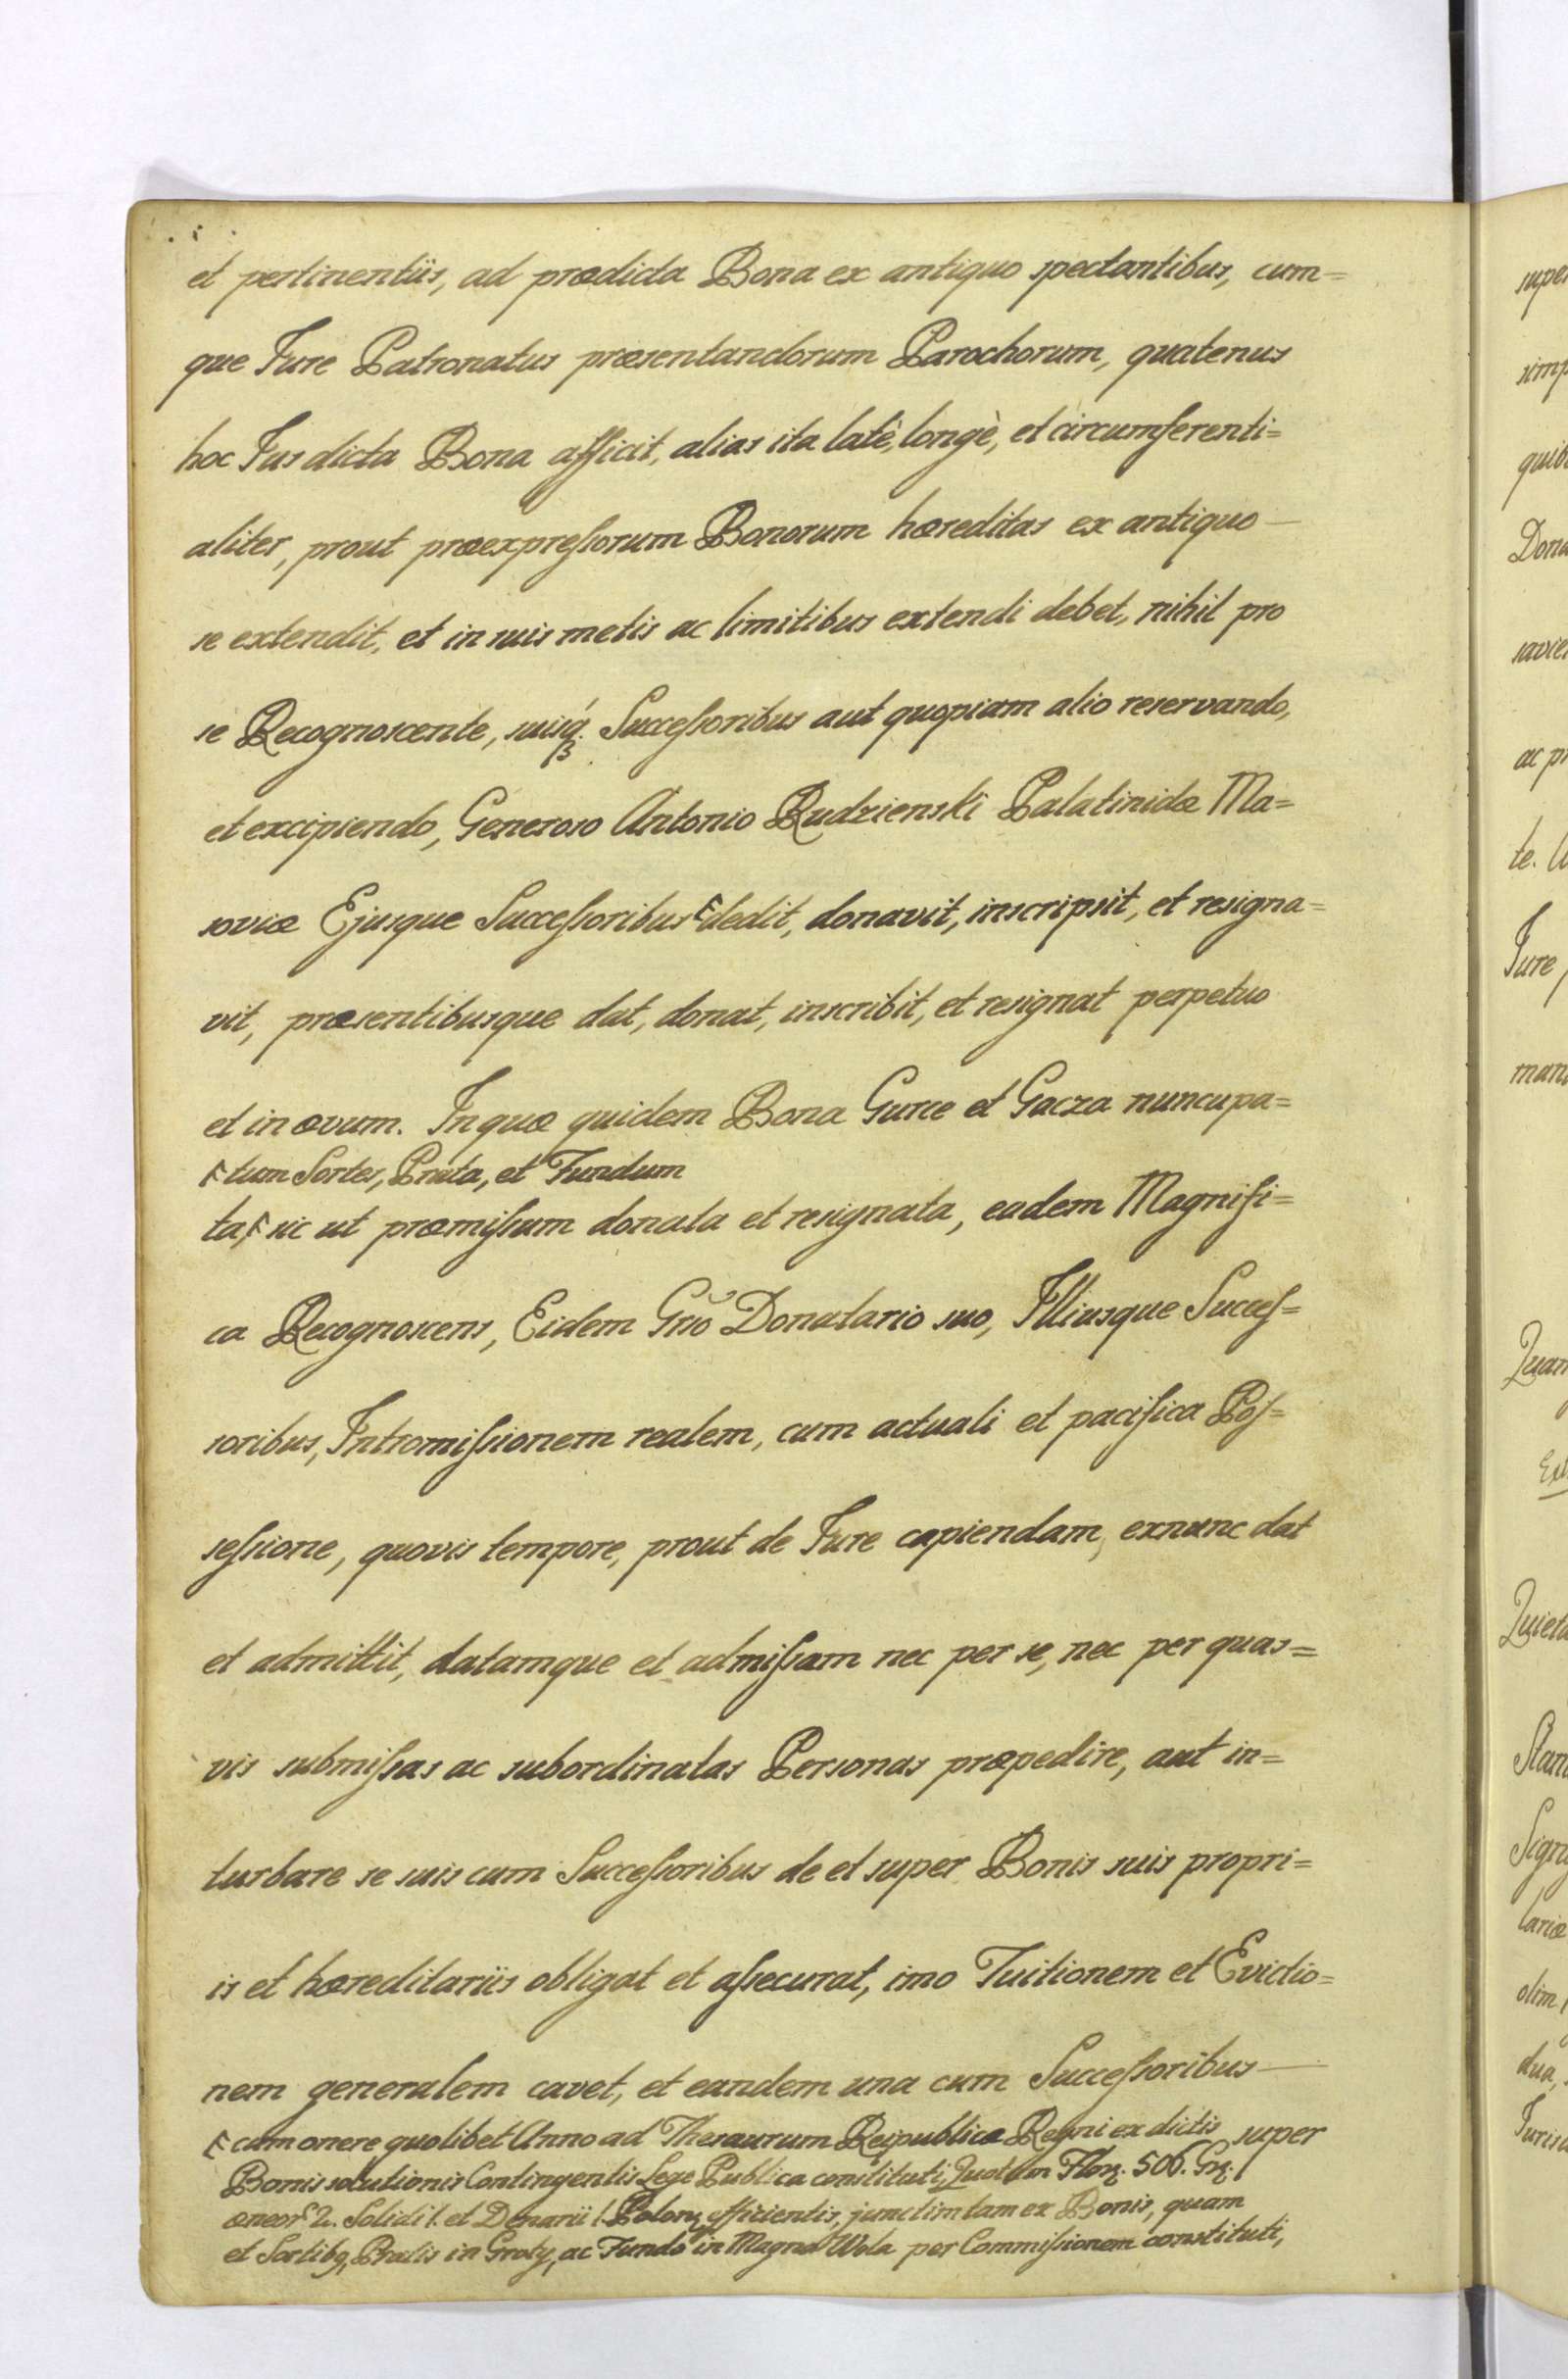 et pertinentiis, ad prædicta Bona ex antiquo spectantibus, cum=
que Jure Patronatus præsentandorum Parochorum, quatenus
hoc Jus dicta Bona afficit, alias ita latè, longè, et circumferenti=
aliter, prout præexpreſsorum Bonorum hæreditas ex antiquo —
se extendit, et in suis metis ac limitibus extendi debet, nihil pro
se Recognoscente, suisq́ꝫ Succeſsoribus aut quopiam alio reservando,
et excipiendo, Generoso Antonio Rudzienski Palatinidæ Ma=
soviæ Ejusque Succeſsoribus F dedit, donavit, inscripsit, et resigna=
vit, præsentibusque dat, donat, inscribit, et resignat perpetuo
et in ævum. In quæ quidem Bona Gurce et Gacza nuncupa=
F tum Sortes, Prata, et Fundum
ta, F sic ut præmiſsum donata et resignata, eadem Magnifi=
ca Recognoscens, Eidem Gn̄o Donatario suo, Illiusque Succeſ=
soribus, Intromiſsionem realem, cum actuali et pacifica Poſ=
seſsione, quovis tempore, prout de Jure capiendam, exnunc dat
et admittit, datamque et admiſsam nec per se, nec per quas=
vis submiſsas ac subordinatas Personas præpedire, aut in=
turbare se suis cum Succeſsoribus de et super Bonis suis propri=
is et hæreditariis obligat et aſsecurat, imo Tuitionem et Evictio=
nem generalem cavet, et eandem una cum Succeſsoribus —
super
F cum onere quolibet Anno ad Thesaurum Reipublicæ Regni ex dictis
Bonis solutionis Contingentis Lege Publica constituti, Quotam Florꝫ. 506. Grꝫ. 1
æneorꝫ 2. Solidi 1. et Denarii 1. Polonꝫ efficientis, junctim tam ex Bonis, quam
et Sortibꝫ, Pratis in Groty, ac Fundo in Magna Wola per Commiſsionem constituti,
supe
simp
quib
Dona
ac p
te.
Jure
man
Quam
Quiet
Sign
lariæ
olim
dua,